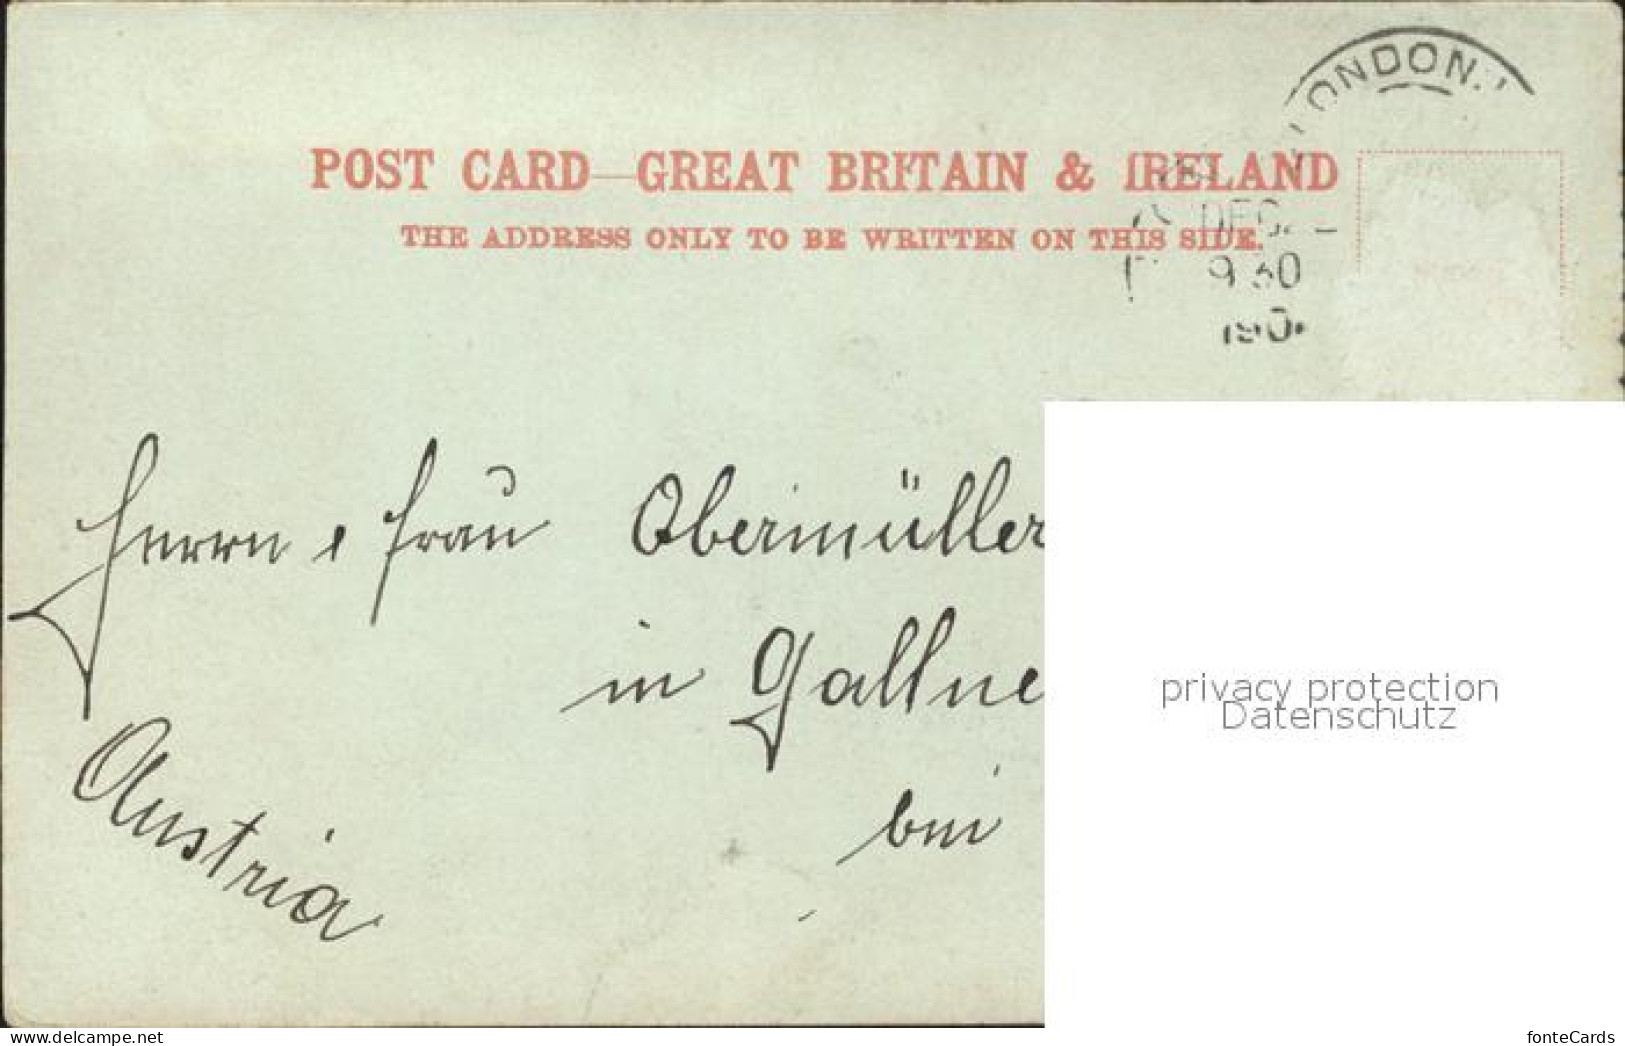 LONDON.
POST CARD—GREAT BRITAIN & IRELAND
THE ADDRESS ONLY TO BE WRITTEN ON THIS SIDE.
DEC.
9 30
190
Herrn & Frau Obermüller
in Gallne
bei
Austria
privacy protection
Datenschutz
www.delcampe.net
fonteCards